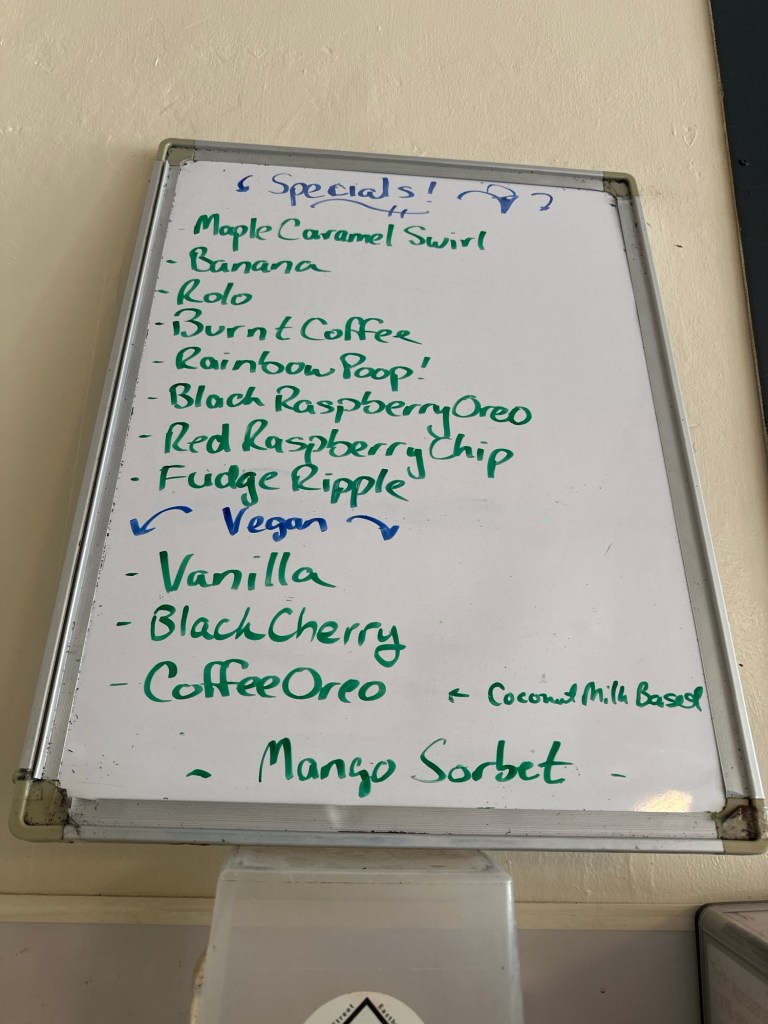 Specials!
Maple Caramel Swirl
- Banana
- Rolo
- Burnt Coffee
- Rainbow Poop!
- Black Raspberry Oreo
- Red Raspberry Chip
- Fudge Ripple
Vegan
- Vanilla
- Black Cherry
- Coffee Oreo ← Coconut Milk Based
- Mango Sorbet -
Street East